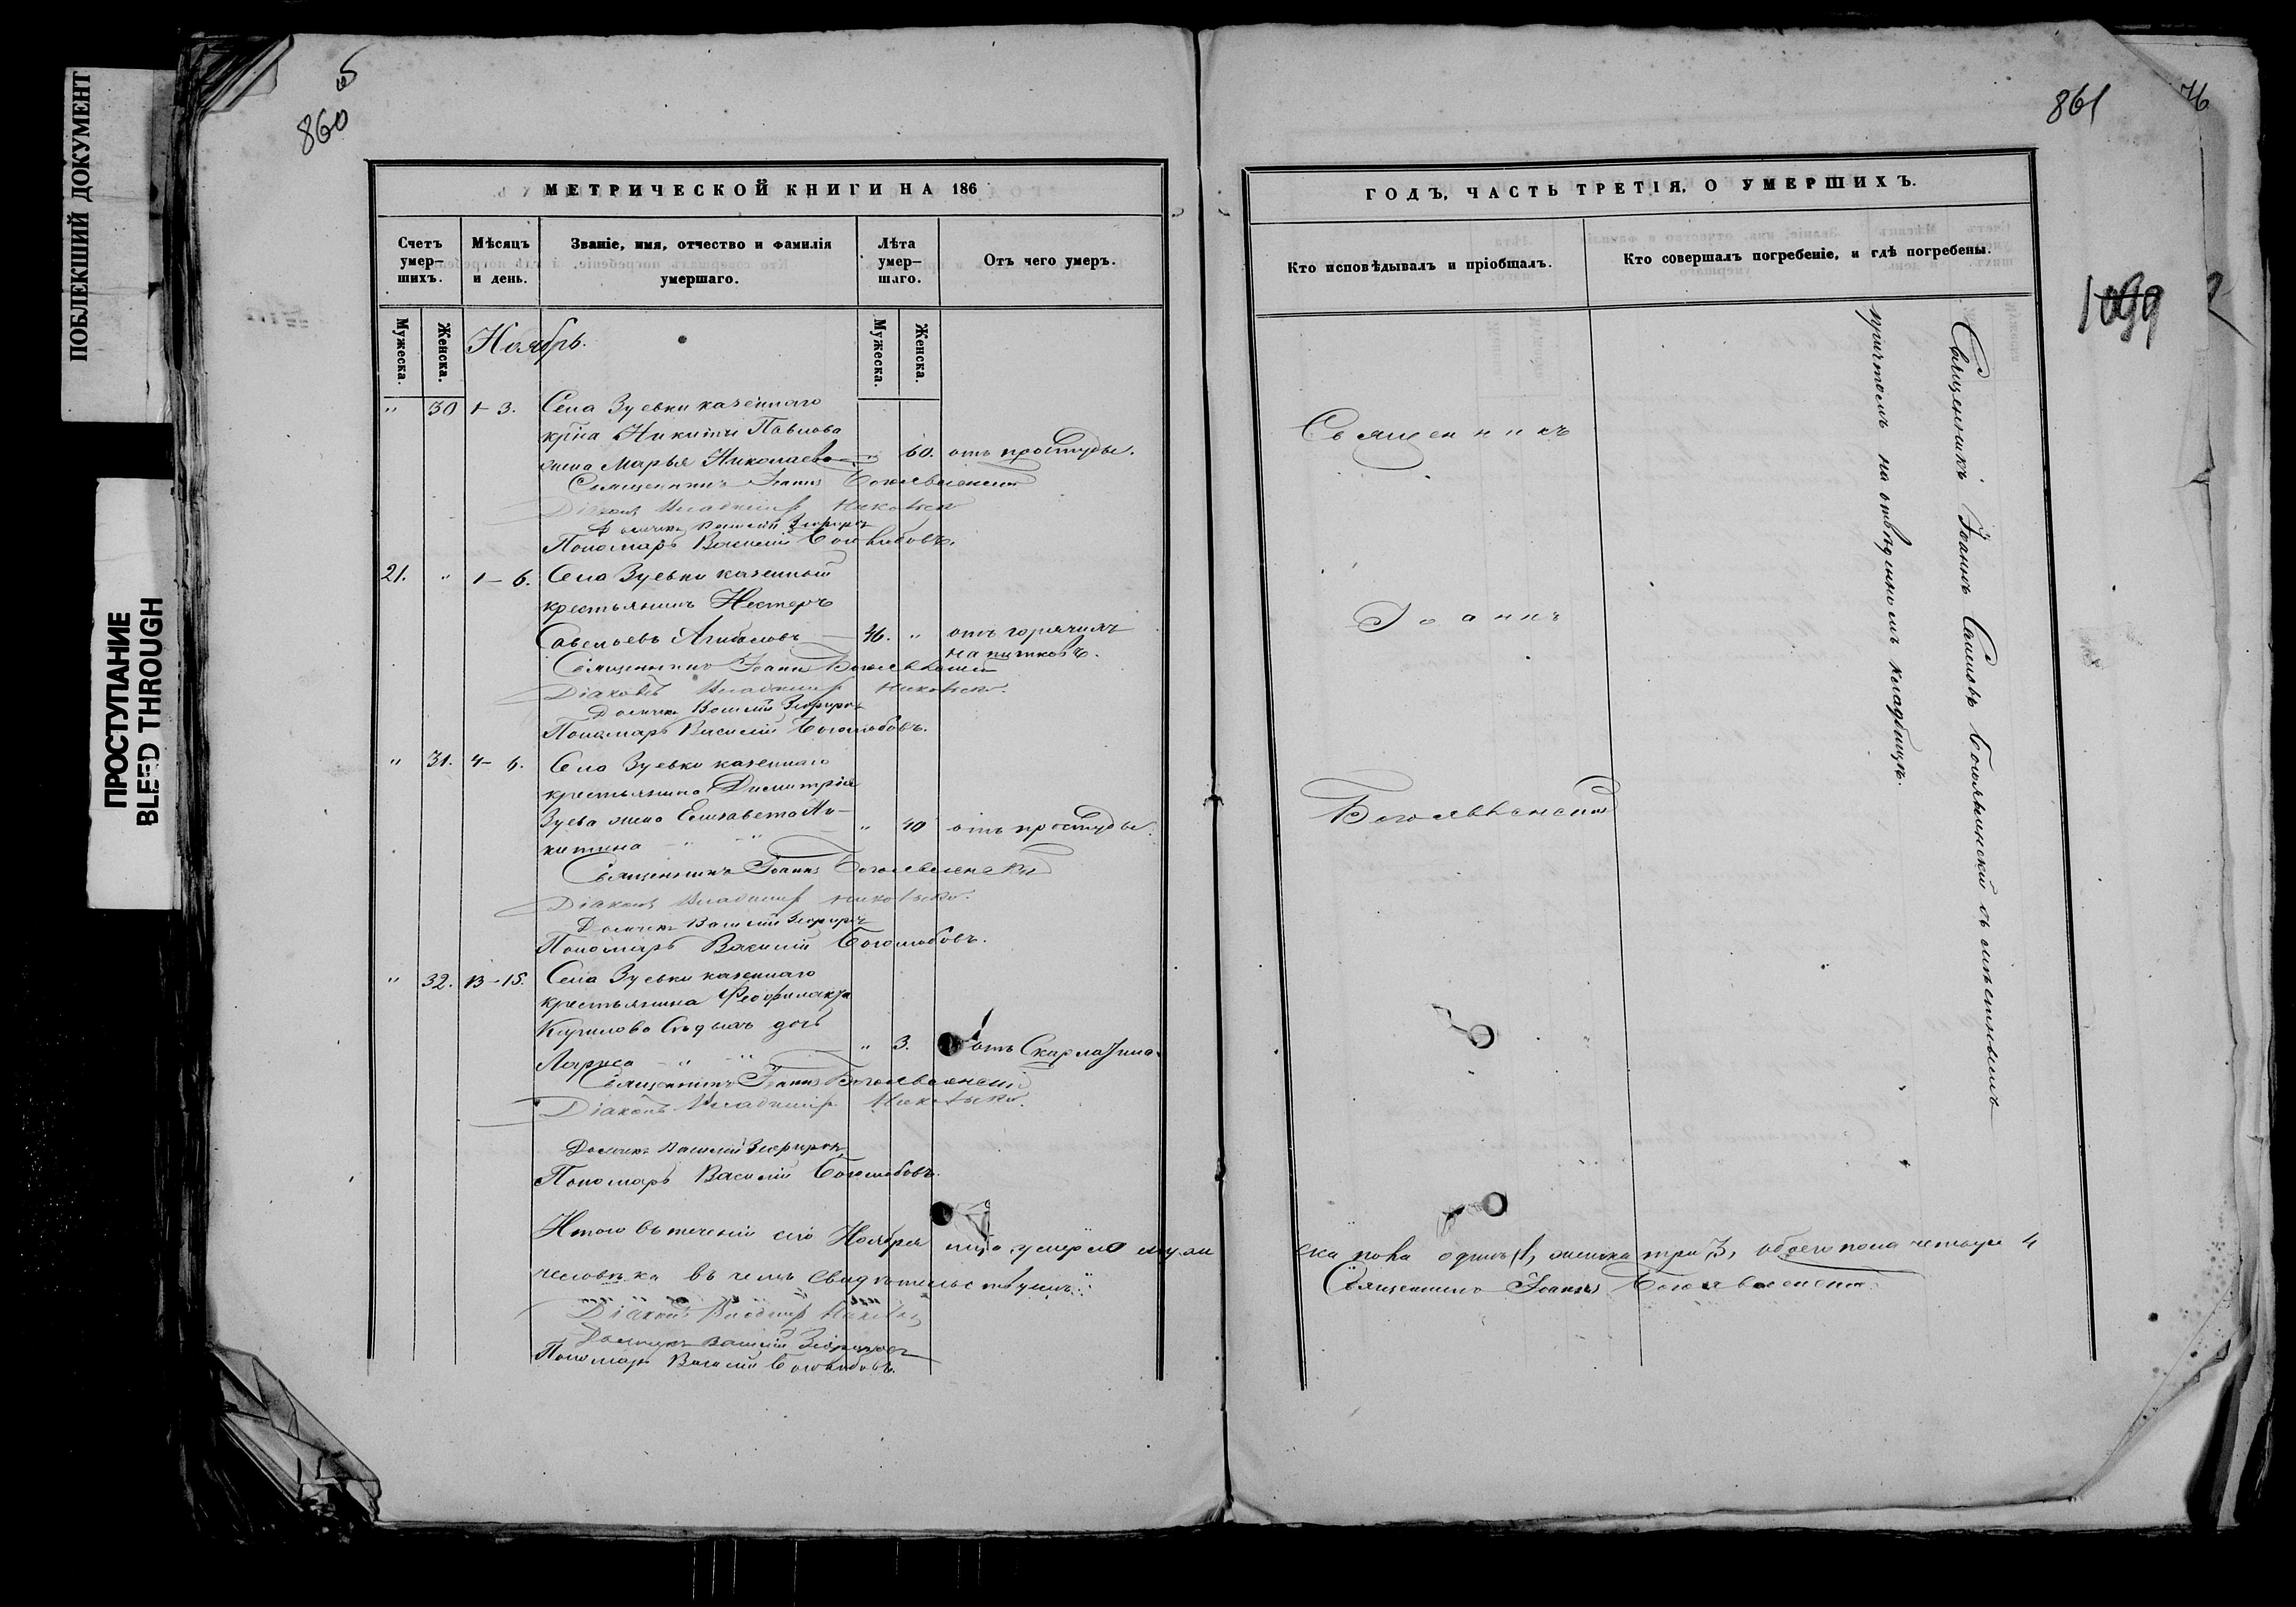 ПОБЛЕКШИЙ ДОКУМЕНТ
ПРОСТУПАНИЕ
BLEED THROUGH
860
МЕТРИЧЕСКОЙ КНИГИ НА 186
Счетъ умер-
шихъ.
Мѣсяцъ
и день.
Званіе, имя, отчество и фамилія
умершаго.
Лѣта
умер-
шаго.
Отъ чего умеръ.
Мужеска.
Женска.
Ноябрь.
Мужеска.
Женска.
" 30 1- 3. Села Зуевки казеннаго
крⷭ҇на Никиты Павлова
жена Марья Николаева " 60. отъ простуды.
Священникъ Іоаннъ Богоявленскій
Діаконъ Владимір
Дьячекъ Василій Зефировъ
Пономарь Василій Боголюбовъ.
21. " 1 - 6. Села Зуевки казенный
крестьянинъ Нестеръ
Савельевъ 46. " отъ горячихъ
напитковъ.
Священникъ Іоаннъ Богоявленскій
Діаконъ Владимір
Дьячекъ Василій Зефировъ
Пономарь Василій Боголюбовъ.
" 31. 4- 6. Села Зуевки казеннаго
крестьянина Димитрія
Зуева жена Елизавета Ни-
китина " 40 отъ простуды.
Священникъ Іоаннъ Богоявленскій
Діаконъ Владимір
Дьячекъ Василій Зефировъ
Пономарь Василій Боголюбовъ.
" 32. 13-15. Села Зуевки казеннаго
крестьянина Феофилакта
Кирилова Сѣдыхъ дочь
Лариса " 3. отъ Скарлатина.
Священникъ Іоаннъ Богоявленскій
Діаконъ Владимір
Дьячекъ Василій Зефировъ
Пономарь Василій Боголюбовъ.
Итого въ теченіи сего Ноября м-ца умерло муже
человѣка въ чемъ свидѣтельствуемъ:
Діаконъ Владимір
Дьячекъ Василій Зефировъ
Пономарь Василій Боголюбовъ.
861
76
1099
ГОДЪ, ЧАСТЬ ТРЕТІЯ, О УМЕРШИХЪ.
Кто исповѣдывалъ и пріобщалъ.
Кто совершалъ погребеніе, и гдѣ погребены.
Священникъ
Іоаннъ
Богоявленскій
Священникъ Іоаннъ Богоявленскій съ мѣстнымъ
причтомъ на отведенномъ кладбищѣ.
ска пола одинъ 1, женска три 3, обоего пола четыре 4
Священникъ Іоаннъ Богоявленскій